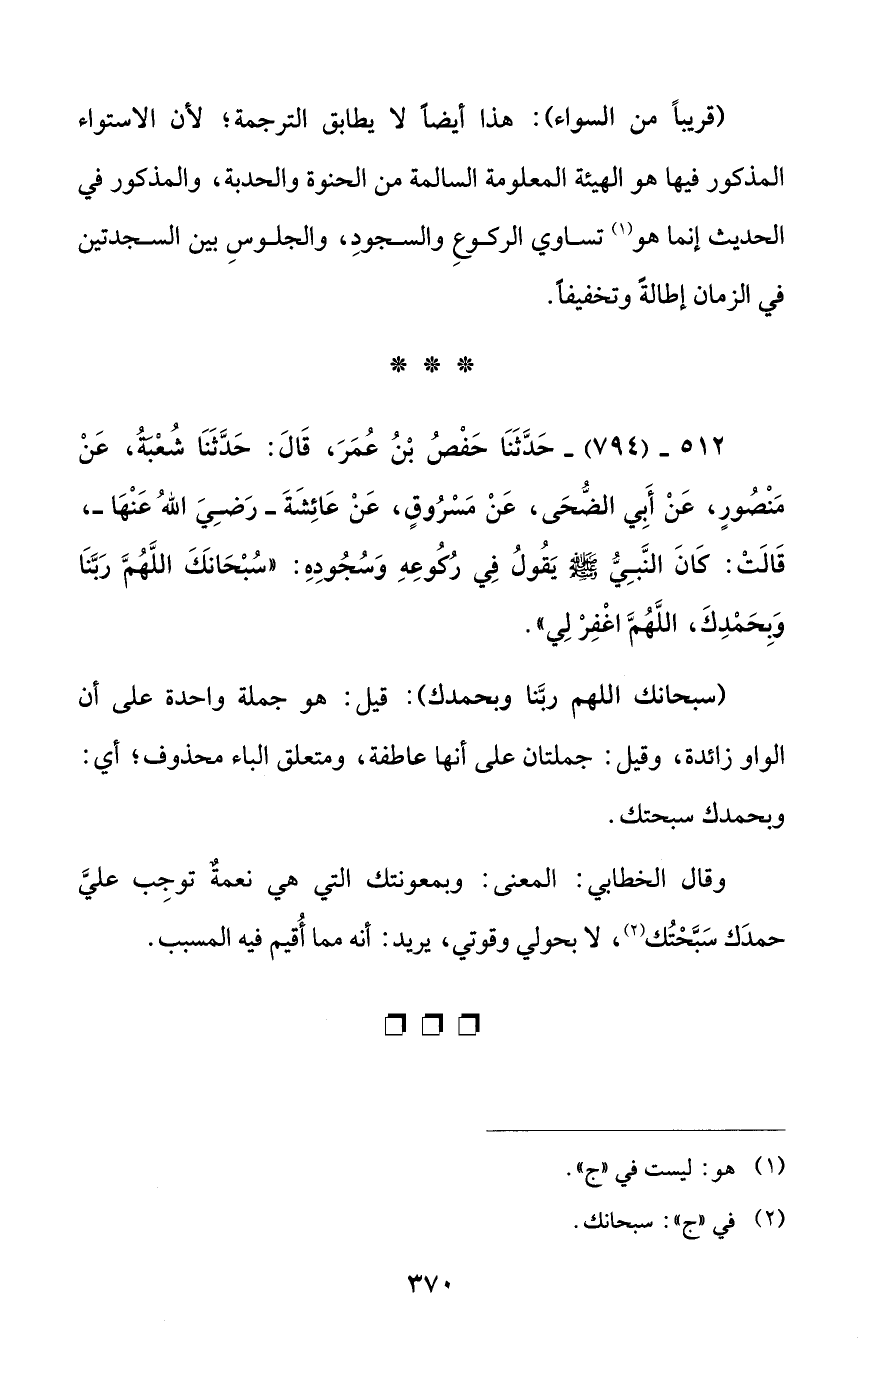 (قريباً من السواء): هذا أيضاً لا يطابق الترجمة؛ لأن الاستواء
المذكور فيها هو الهيئة المعلومة السالمة من الحنوة والحدبة، والمذكور في
الحديث إنما هو(١) تساوي الركوعِ والسجودِ، والجلوسِ بين السجدتين
في الزمان إطالةً وتخفيفاً.
* * *
٥١٢ ـ (٧٩٤) ـ حَدَّثَنَا حَفْصُ بْنُ عُمَرَ، قَالَ: حَدَّثَنَا شُعْبَةُ، عَنْ
مَنْصُورٍ، عَنْ أَبِي الضُّحَى، عَنْ مَسْرُوقٍ، عَنْ عَائِشَةَ ـ رَضِيَ اللهُ عَنْهَا ـ،
قَالَتْ: كَانَ النَّبِيُّ ﷺ يَقُولُ فِي رُكُوعِهِ وَسُجُودِهِ: «سُبْحَانَكَ اللَّهُمَّ رَبَّنَا
وَبِحَمْدِكَ، اللَّهُمَّ اغْفِرْ لِي».
(سبحانك اللهم ربَّنا وبحمدك): قيل: هو جملة واحدة على أن
الواو زائدة، وقيل: جملتان على أنها عاطفة، ومتعلق الباء محذوف؛ أي:
وبحمدك سبحتك.
وقال الخطابي: المعنى: وبمعونتك التي هي نعمةٌ توجِب عليَّ
حمدَك سَبَّحْتُك(٢)، لا بحولي وقوتي، يريد: أنه مما أُقيم فيه المسبب.
❐ ❐ ❐
(١) هو: ليست في «ج».
(٢) في «ج»: سبحانك.
٣٧٠